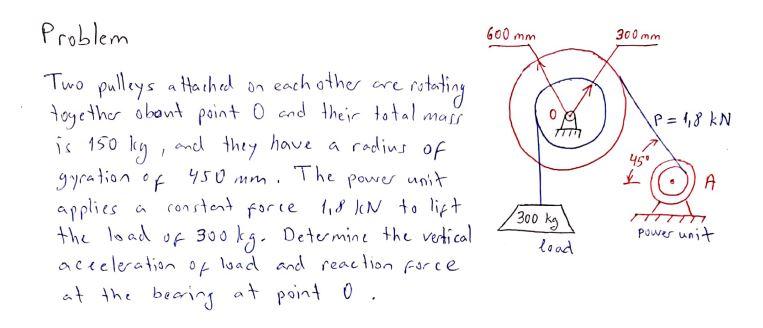 Problem
Two pulleys attached on each other are rotating
together about point O and their total mass
is 150 kg, and they have a radius of
gyration of 450 mm. The power unit
applies a constant force 1,8 kN to lift
the load of 300 kg. Determine the vertical
acceleration of load and reaction force
at the bearing at point O.
600 mm
300 mm
O
P = 1,8 kN
45°
A
300 kg
load
power unit